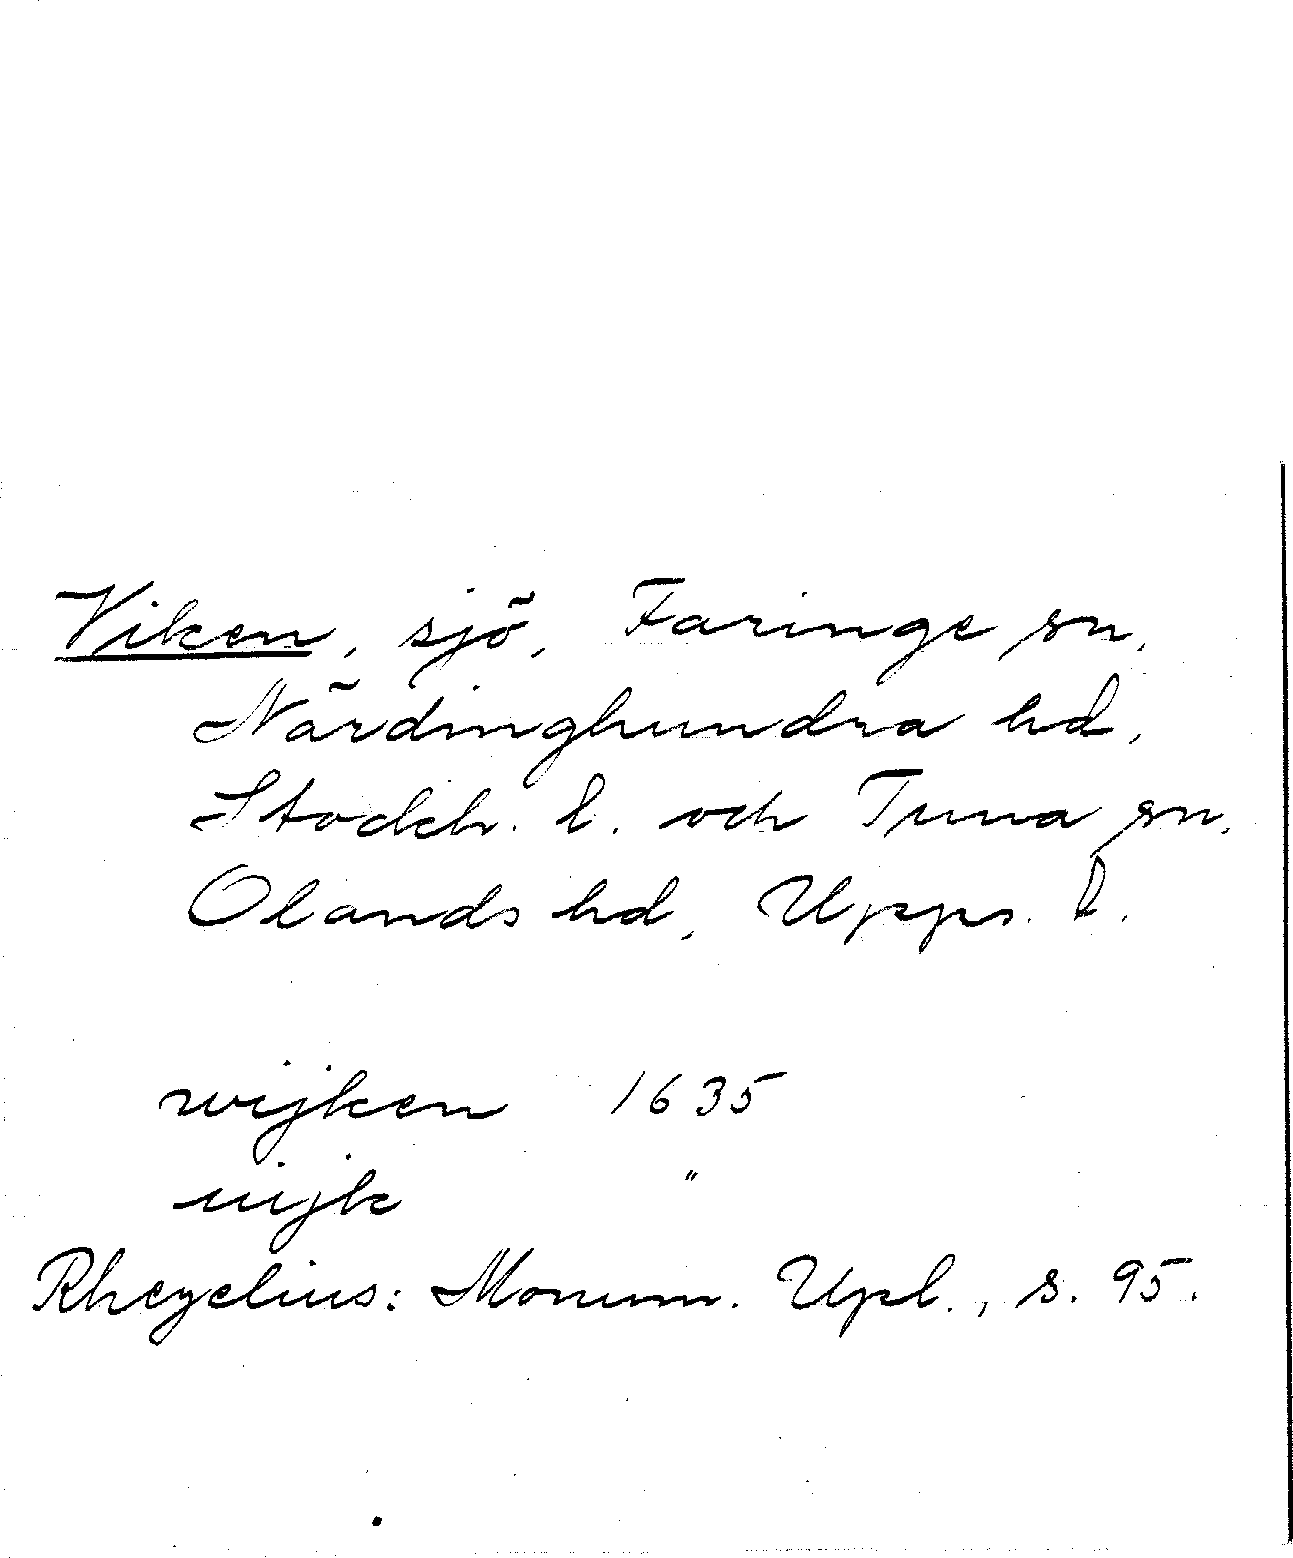 Viken, sjö, Faringe sn,
Närdinghundra hd,
Stockh. l. och Tuna sn,
Olands hd, Upps. l.
wijken 1635
uijk "
Rhezelius: Monum. Upl., s. 95.